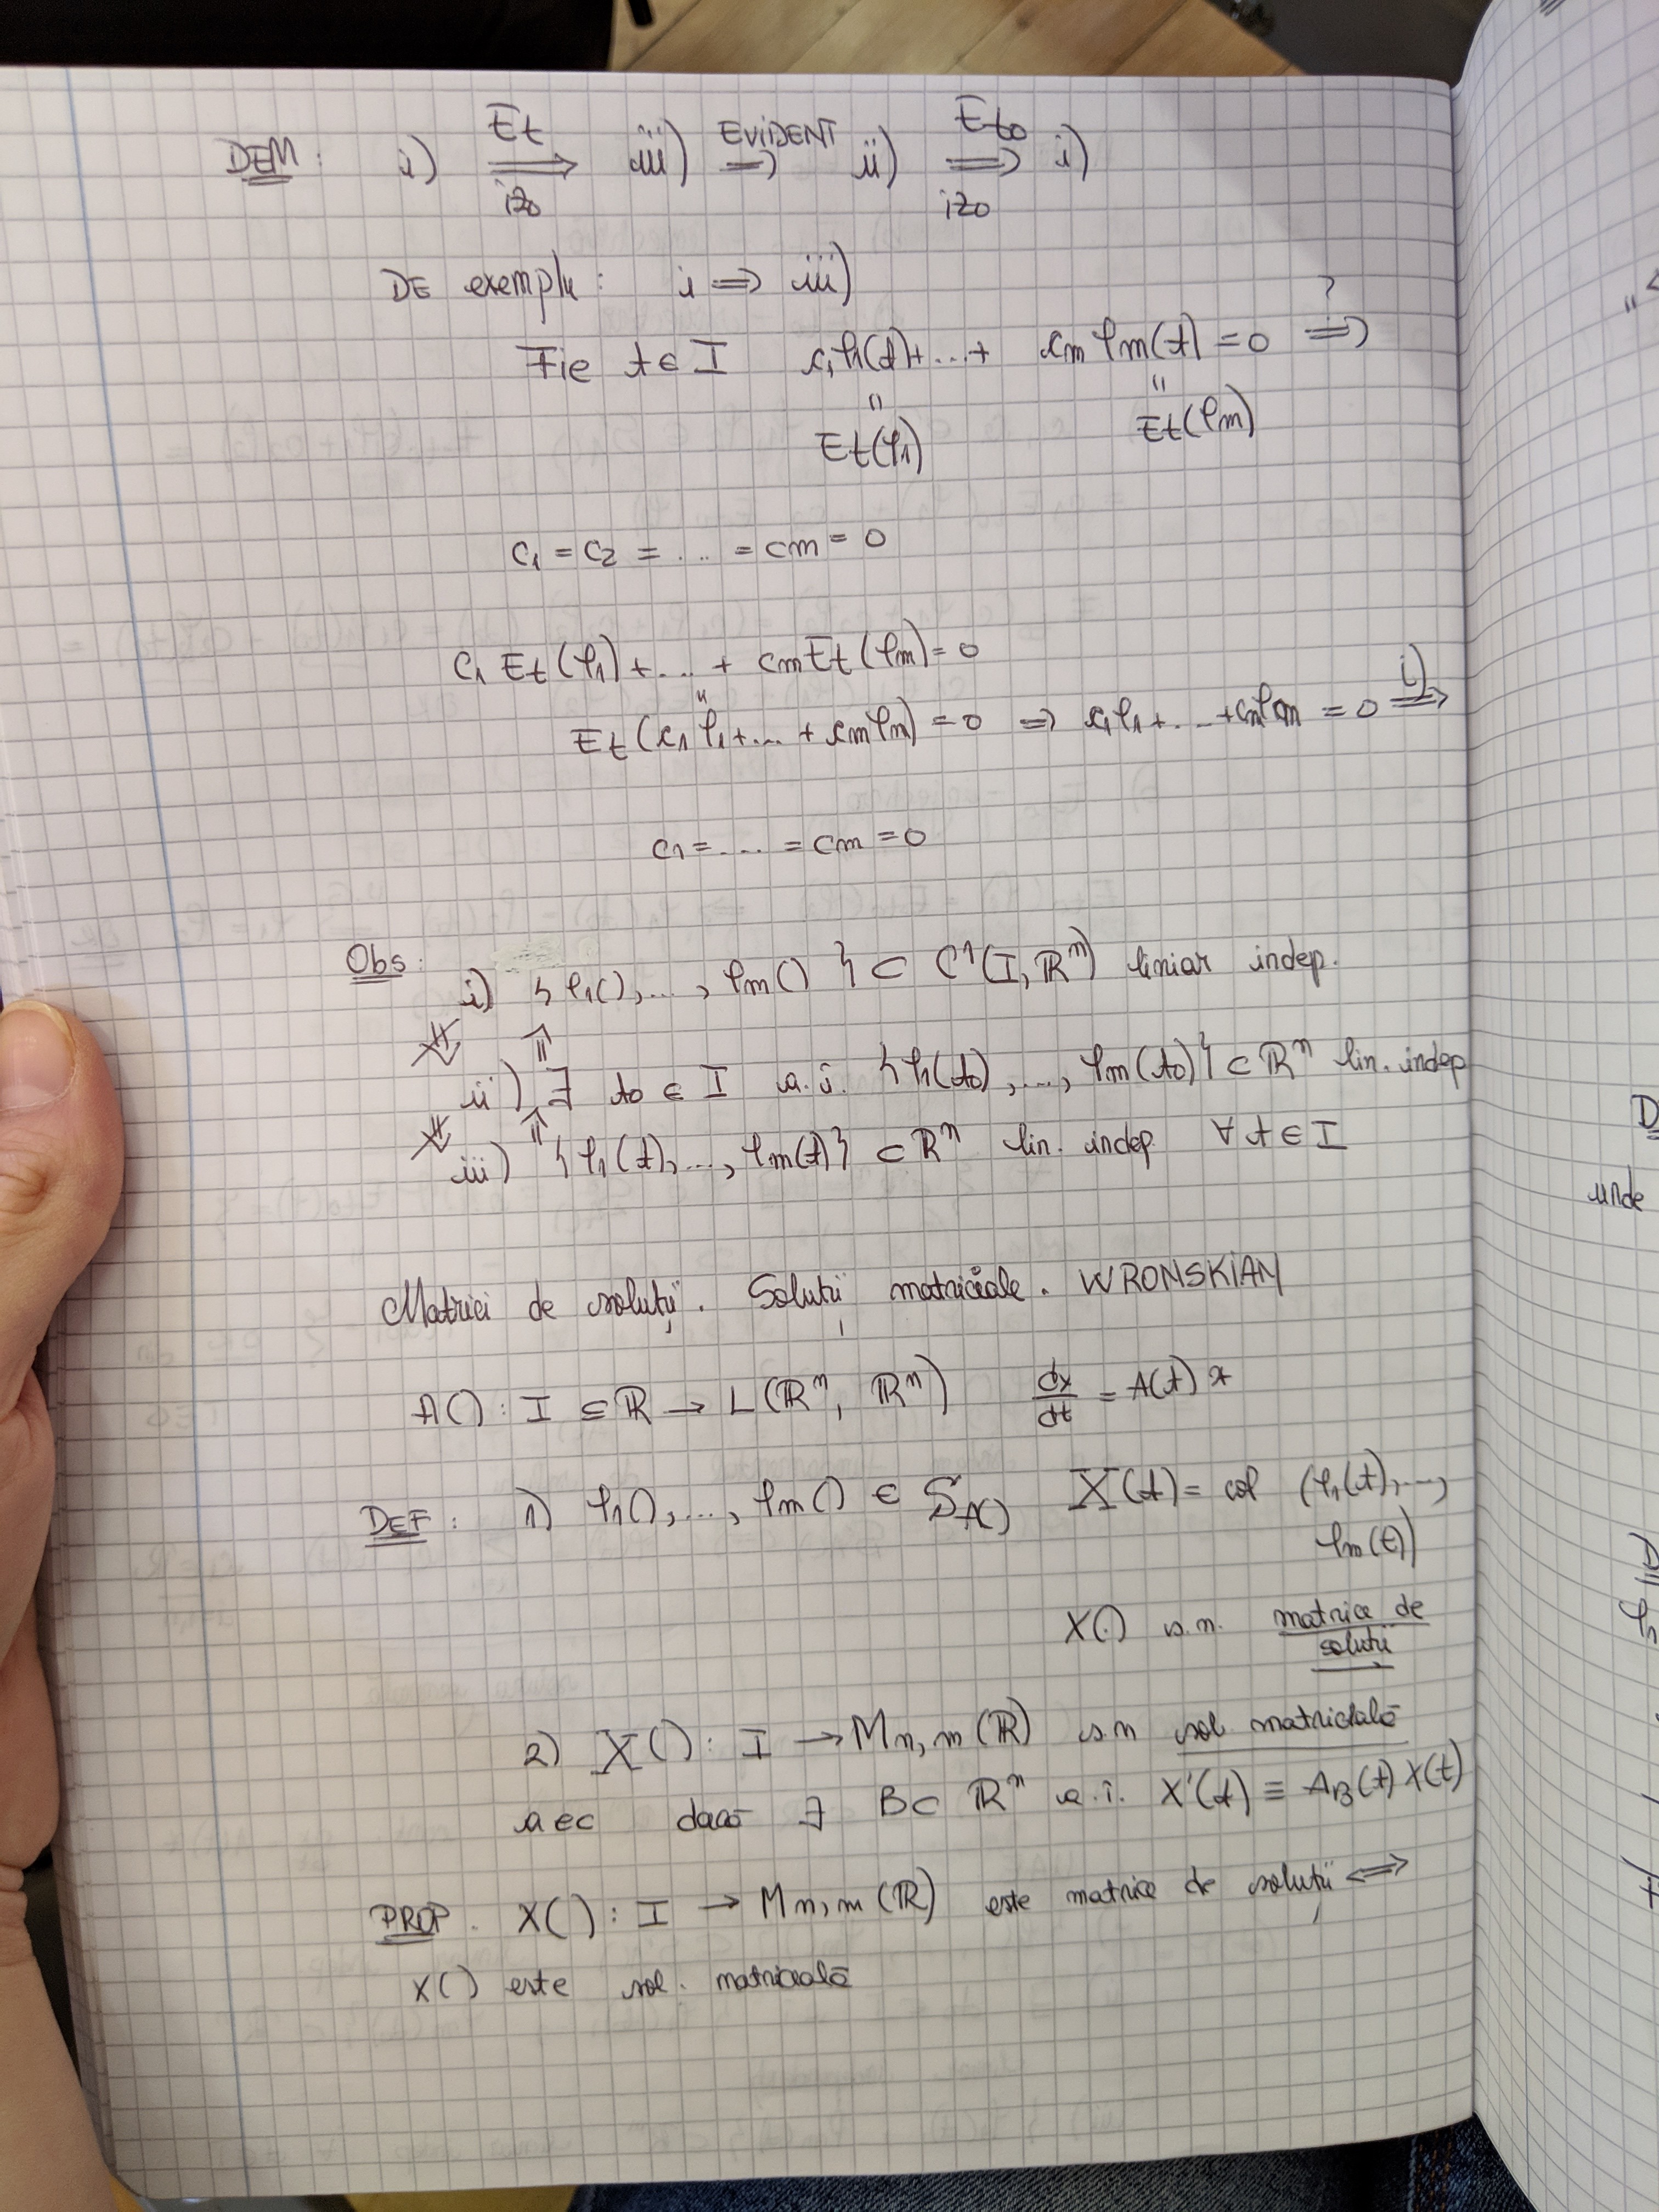 DEM: i) =Et/izo=> iii) =EVIDENT=> ii) =Eto/izo=> i)
DE exemplu: i => iii)
Fie t ∈ I c₁φ₁(t)+...+ cmφm(t) = 0 =?=>
" "
Et(φ₁) Et(φm)
c₁ = c₂ = ... = cm = 0
c₁ Et(φ₁) + ... + cm Et(φm) = 0
"
Et(c₁φ₁+...+cmφm) = 0 => c₁φ₁+...+cmφm = 0 =i)=>
c₁ = ... = cm = 0
Obs:
i) {φ₁(),..., φm()} ⊂ C¹(I, ℝⁿ) liniar indep.
⇓̸ ⇑
ii) ∃ t₀ ∈ I a.î. {φ₁(t₀),..., φm(t₀)} ⊂ ℝⁿ lin. indep
⇓̸ ⇑
iii) {φ₁(t),..., φm(t)} ⊂ ℝⁿ lin. indep ∀ t ∈ I
Matrici de soluții. Soluții matriciale. WRONSKIAN
A(): I ⊆ ℝ → L(ℝⁿ, ℝⁿ) dx/dt = A(t) x
DEF: 1) φ₁(),..., φm() ∈ S_A() X(t) = col (φ₁(t),...,
φm(t))
X(.) s.n. matrice de
soluții
2) X(): I → Mn,m(ℝ) s.n sol matricială
dec dacă ∃ B ⊂ ℝⁿ a.î. X'(t) ≡ A_B(t) X(t)
PROP. X(): I → Mn,m(ℝ) este matrice de soluții <=>
X() este sol. matricială
unde